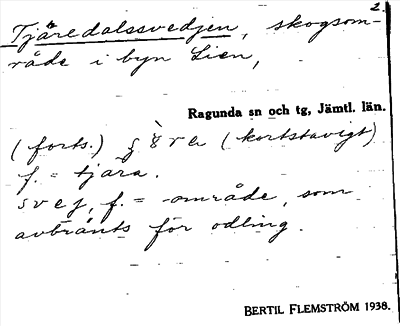 2.
Tjäredalssvedjen, skogsom-
råde i byn Lien,
Ragunda sn och tg, Jämtl. län.
(forts.) (kortstavigt)
f. = tjära.
svej, f. = område, som
avbränts för odling.
BERTIL FLEMSTRÖM 1938.